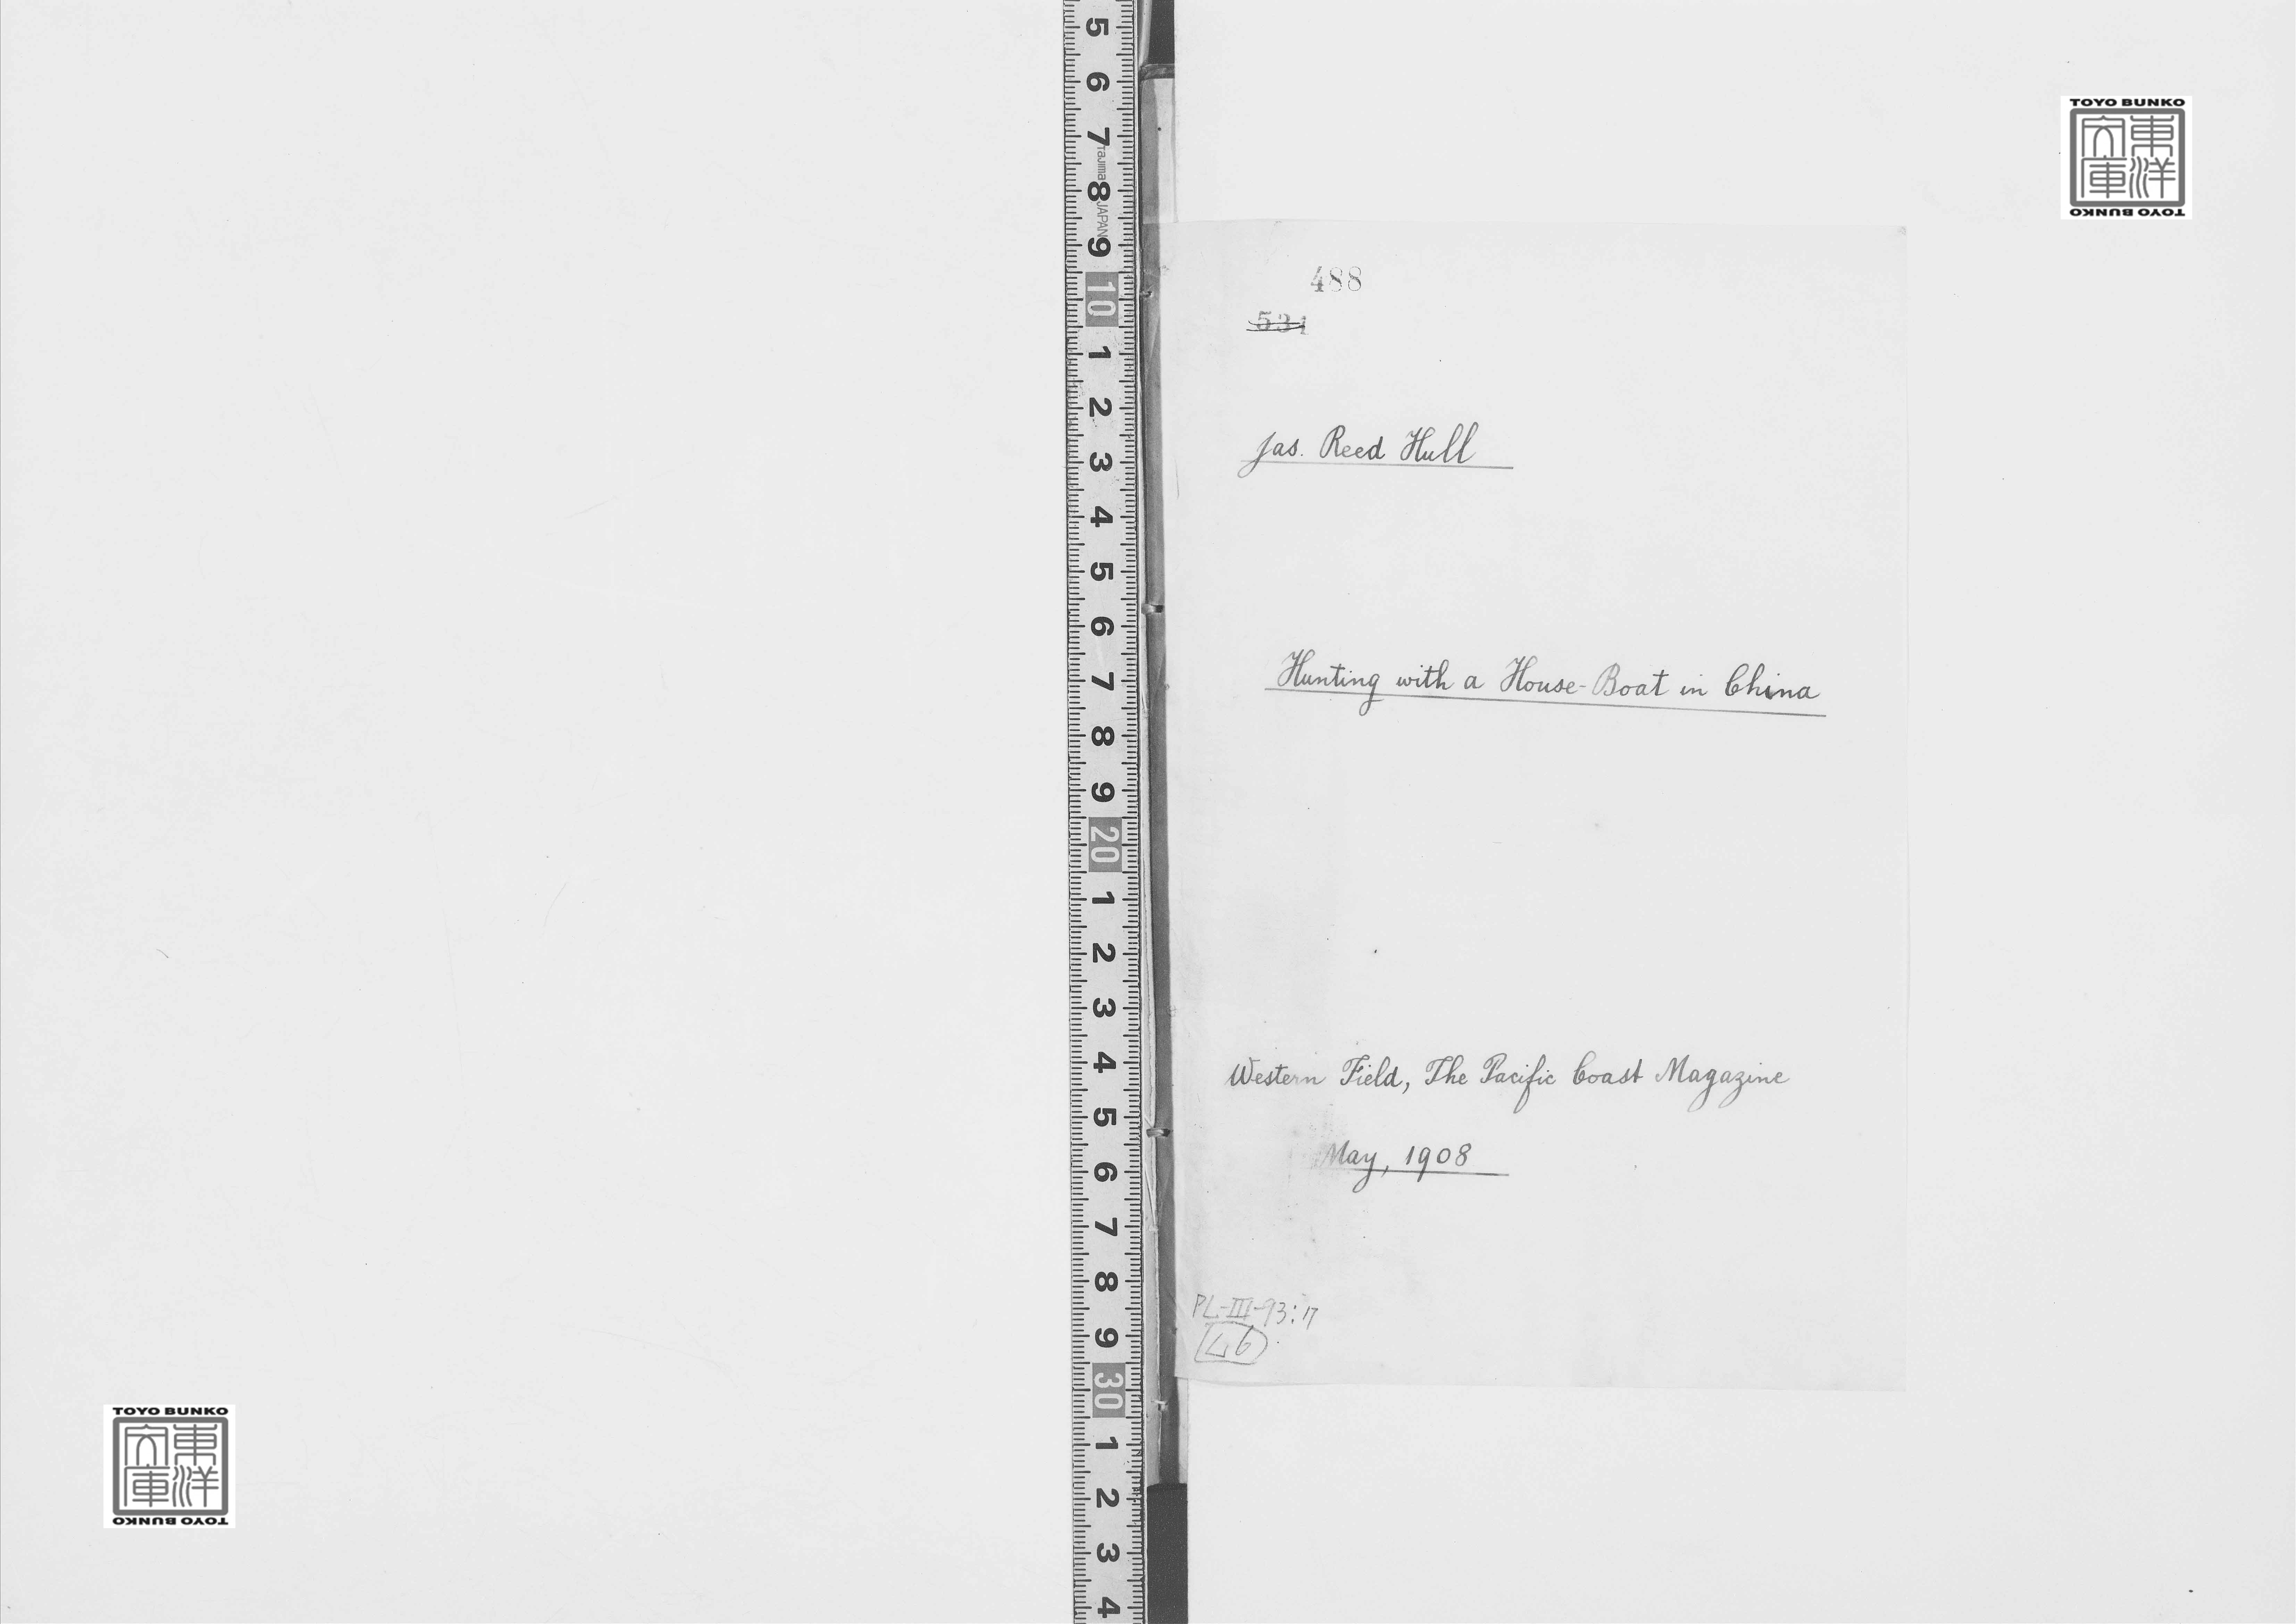 TOYO BUNKO
東洋
文庫
TOYO BUNKO
488
531
Jas. Reed Hull
Hunting with a House-Boat in China
Western Field, The Pacific Coast Magazine
May, 1908
PL-III-93:17
46
5 6 7 8 9 10 1 2 3 4 5 6 7 8 9 20 1 2 3 4 5 6 7 8 9 30 1 2 3 4
Tajima JAPAN
TOYO BUNKO
東洋
文庫
TOYO BUNKO